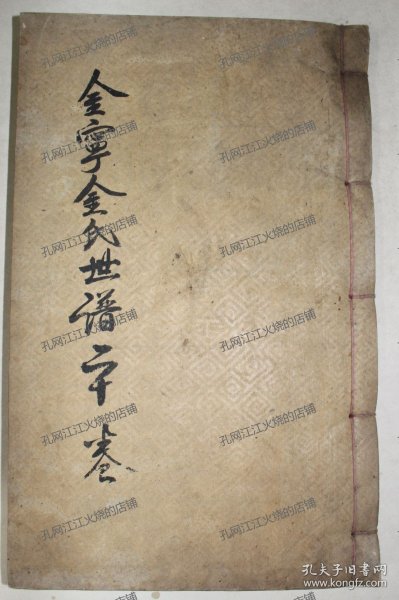 金寧金氏世譜二十卷
孔网江江火烧的店铺
孔网江江火烧的店铺
孔网江江火烧的店铺
孔网江江火烧的店铺
孔网江江火烧的店铺
孔网江江火烧的店铺
孔网江江火烧的店铺
孔网江江火烧的店铺
孔网江江火烧的店铺
孔网江江火烧的店铺
孔网江江火烧的店铺
孔网江江火烧的店铺
孔夫子旧书网
www.kongfz.com